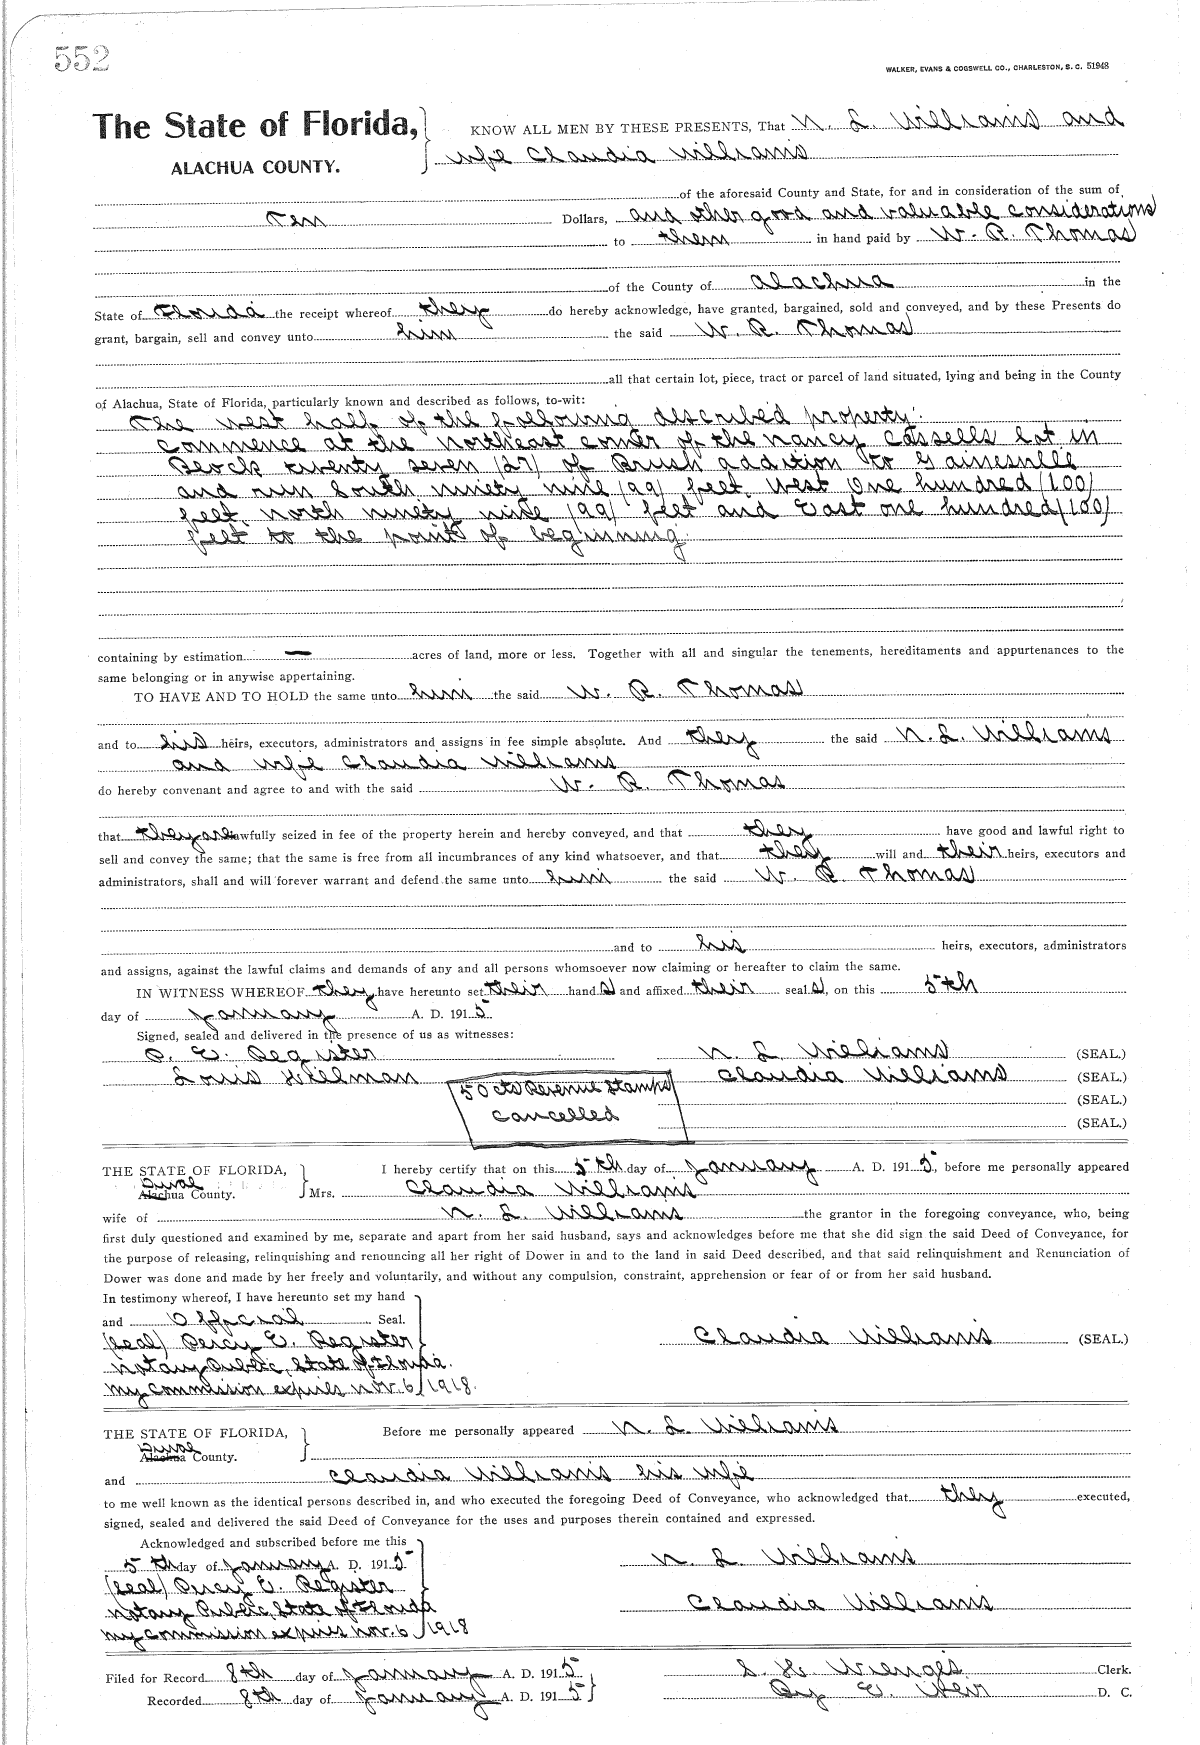 552
WALKER, EVANS & COGSWELL CO., CHARLESTON, S. C. 51948
The State of Florida, KNOW ALL MEN BY THESE PRESENTS, That N. L. Williams and
ALACHUA COUNTY. wife Claudia Williams
of the aforesaid County and State, for and in consideration of the sum of
Ten Dollars, and other good and valuable considerations
to them in hand paid by W. R. Thomas
of the County of Alachua in the
State of Florida the receipt whereof they do hereby acknowledge, have granted, bargained, sold and conveyed, and by these Presents do
grant, bargain, sell and convey unto him the said W. R. Thomas
all that certain lot, piece, tract or parcel of land situated, lying and being in the County
of Alachua, State of Florida, particularly known and described as follows, to-wit:
The West half of the following described property:
Commence at the Northeast corner of the Nancy Cassells lot in
Block twenty seven (27) of Brush addition to Gainesville
and run South ninety nine (99) feet, West One hundred (100)
feet, North ninety nine (99) feet and East one hundred (100)
feet to the point of beginning.
containing by estimation — acres of land, more or less. Together with all and singular the tenements, hereditaments and appurtenances to the
same belonging or in anywise appertaining.
TO HAVE AND TO HOLD the same unto him the said W. R. Thomas
and to his heirs, executors, administrators and assigns in fee simple absolute. And they the said N. L. Williams
and wife Claudia Williams
do hereby convenant and agree to and with the said W. R. Thomas
that they are lawfully seized in fee of the property herein and hereby conveyed, and that they have good and lawful right to
sell and convey the same; that the same is free from all incumbrances of any kind whatsoever, and that they will and their heirs, executors and
administrators, shall and will forever warrant and defend the same unto him the said W. R. Thomas
and to his heirs, executors, administrators
and assigns, against the lawful claims and demands of any and all persons whomsoever now claiming or hereafter to claim the same.
IN WITNESS WHEREOF they have hereunto set their hand s and affixed their seal s, on this 5th
day of January A. D. 1915
Signed, sealed and delivered in the presence of us as witnesses:
P. E. Register N. L. Williams (SEAL.)
Louis Hillman Claudia Williams (SEAL.)
50 cts Revenue Stamps (SEAL.)
Cancelled (SEAL.)
THE STATE OF FLORIDA, I hereby certify that on this 5th day of January A. D. 1915, before me personally appeared
Duval
Alachua County. Mrs. Claudia Williams
wife of N. L. Williams the grantor in the foregoing conveyance, who, being
first duly questioned and examined by me, separate and apart from her said husband, says and acknowledges before me that she did sign the said Deed of Conveyance, for
the purpose of releasing, relinquishing and renouncing all her right of Dower in and to the land in said Deed described, and that said relinquishment and Renunciation of
Dower was done and made by her freely and voluntarily, and without any compulsion, constraint, apprehension or fear of or from her said husband.
In testimony whereof, I have hereunto set my hand
and Official Seal.
(Seal) Percy E. Register Claudia Williams (SEAL.)
Notary Public, State of Florida.
My commission expires Nov. 6/1918.
THE STATE OF FLORIDA, Before me personally appeared N. L. Williams
Duval
Alachua County.
and Claudia Williams his wife
to me well known as the identical persons described in, and who executed the foregoing Deed of Conveyance, who acknowledged that they executed,
signed, sealed and delivered the said Deed of Conveyance for the uses and purposes therein contained and expressed.
Acknowledged and subscribed before me this
5th day of January A. D. 1915 N. L. Williams
(Seal) Percy E. Register
Notary Public, State of Florida Claudia Williams
My commission expires Nov. 6/1918
Filed for Record 8th day of January A. D. 1915 S. H. Wienges Clerk.
Recorded 8th day of January A. D. 1915 By E. Weir D. C.